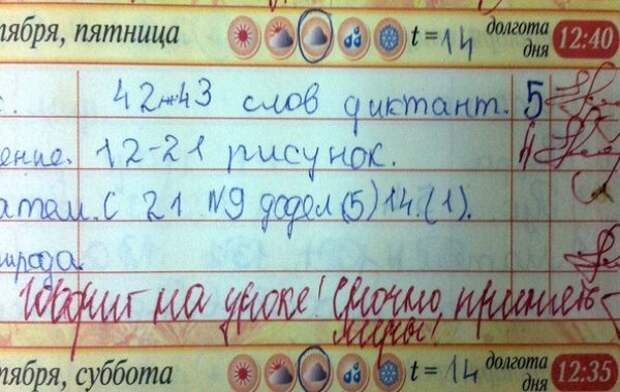 тября, пятница t = 14 долгота дня 12:40
с. 42-43 слов диктант. 5
ение. 12-21 рисунок. 4
атем. С 21 №9 додел (5) 14.(1).
рирода
Говорит на уроке! Срочно, принять
меры!
тября, суббота t = 14 долгота дня 12:35